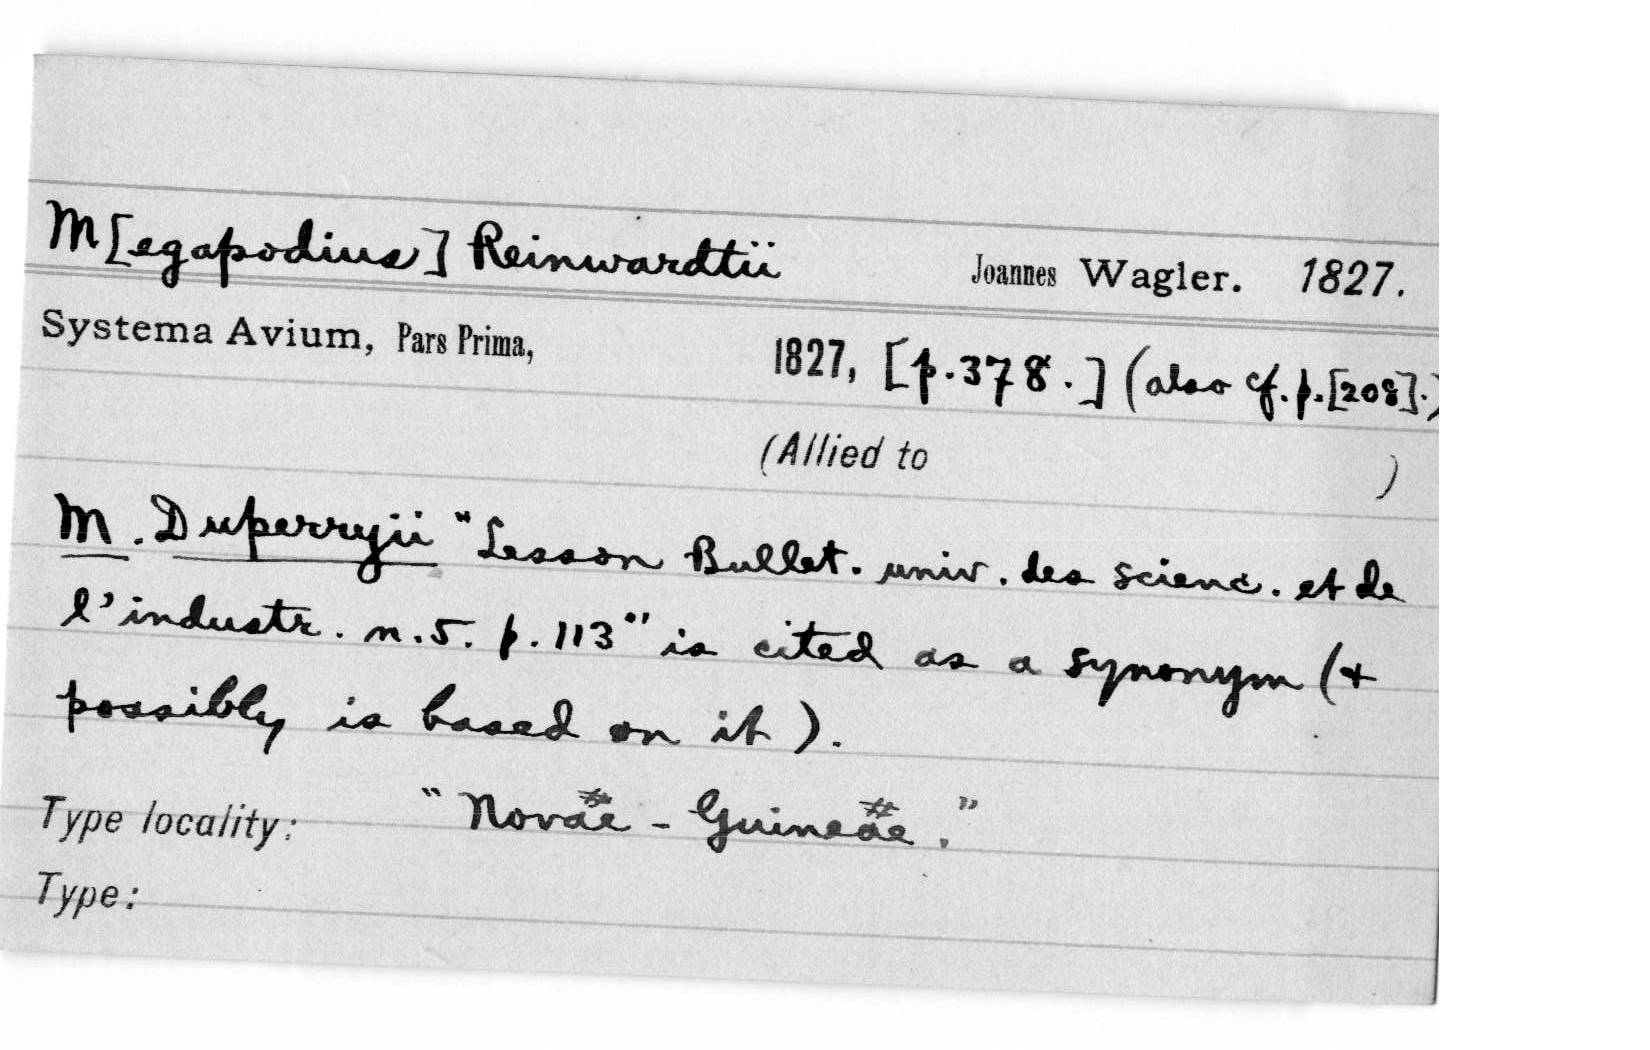 M[egapodius] Reinwardtii Joannes Wagler. 1827.
Systema Avium, Pars Prima, 1827, [p.378.] (also cf. p.[208].)
(Allied to )
M. Duperryii "Lesson Bullet. univ. des scienc. et de
l'industr. n.5. p.113" is cited as a synonym (+
possibly is based on it).
Type locality: "Novae - Guineae."
Type: